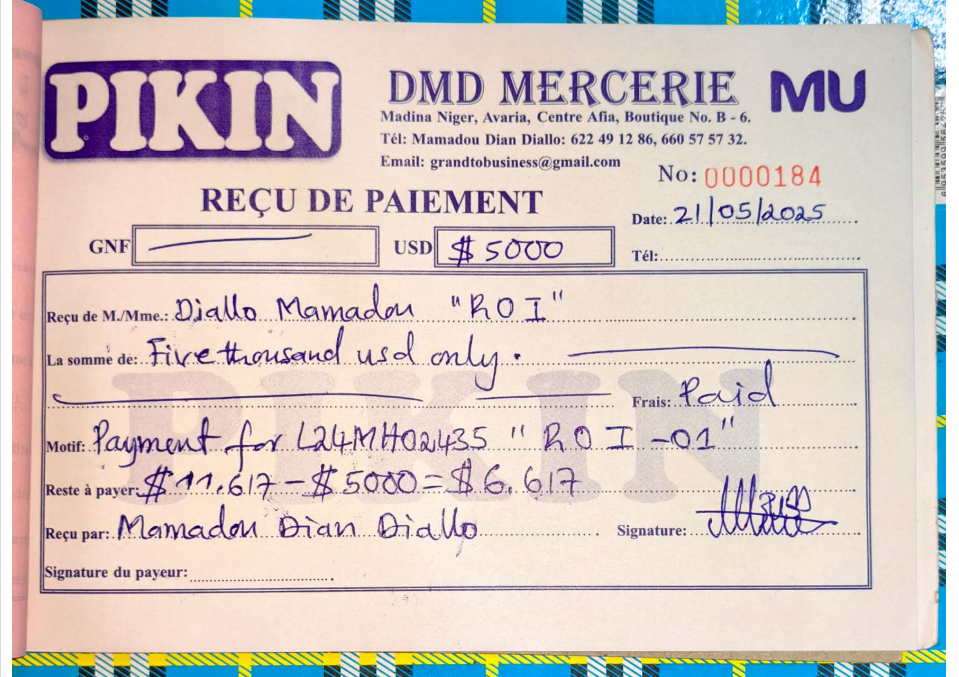 PIKIN
DMD MERCERIE
MU
Madina Niger, Avaria, Centre Afia, Boutique No. B - 6.
Tél: Mamadou Dian Diallo: 622 49 12 86, 660 57 57 32.
Email: grandtobusiness@gmail.com
No: 0000184
REÇU DE PAIEMENT
Date: 21/05/2025
GNF USD $ 5000 Tél:
Reçu de M./Mme.: Diallo Mamadou "ROI"
La somme de: Five thousand usd only.
Frais: Paid
Motif: Payment for L24MH02435 "ROI-01"
Reste à payer: $11.617 - $5000 = $6.617
Reçu par: Mamadou Dian Diallo Signature:
Signature du payeur:
PIKIN